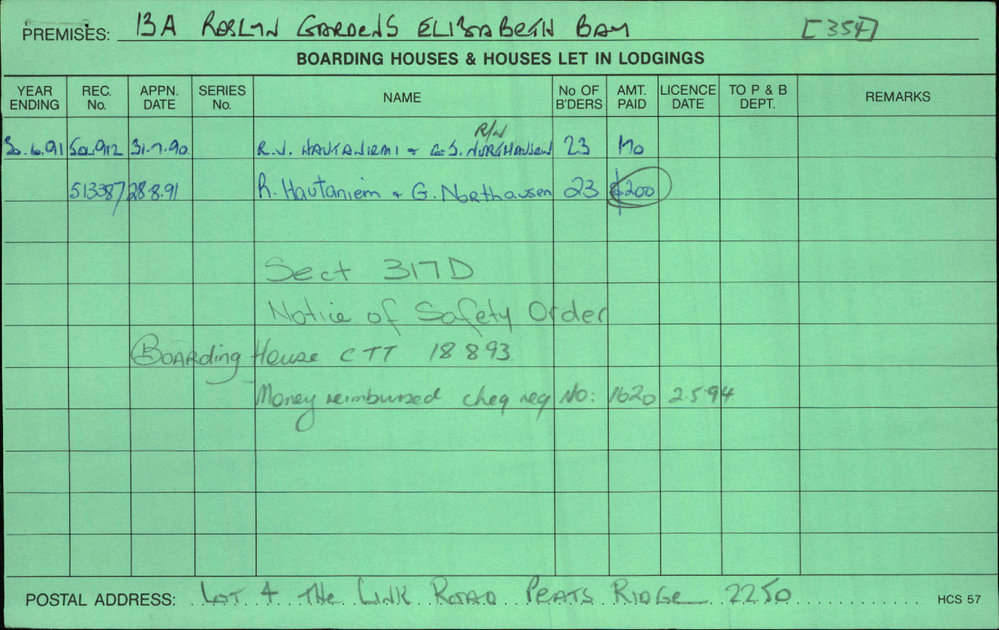 PREMISES: 13A ROSLYN GARDENS ELIZABETH BAY [354]
BOARDING HOUSES & HOUSES LET IN LODGINGS
YEAR ENDING REC. No. APPN. DATE SERIES No. NAME No OF B'DERS AMT. PAID LICENCE DATE TO P & B DEPT. REMARKS
R/N
30.6.91 31.7.90 R.J. HAUTANIEMI + G.S. NORTHAUSEN 23
513387 28.8.91 R. Hautaniem + G. Northausen 23 $200
Sect 317D
Notice of Safety Order
Boarding House CTT 18 8 93
Money reimbursed cheq req No: 1620 2.5.94
POSTAL ADDRESS: LOT 4 THE LINK ROAD PEATS RIDGE 2250 HCS 57